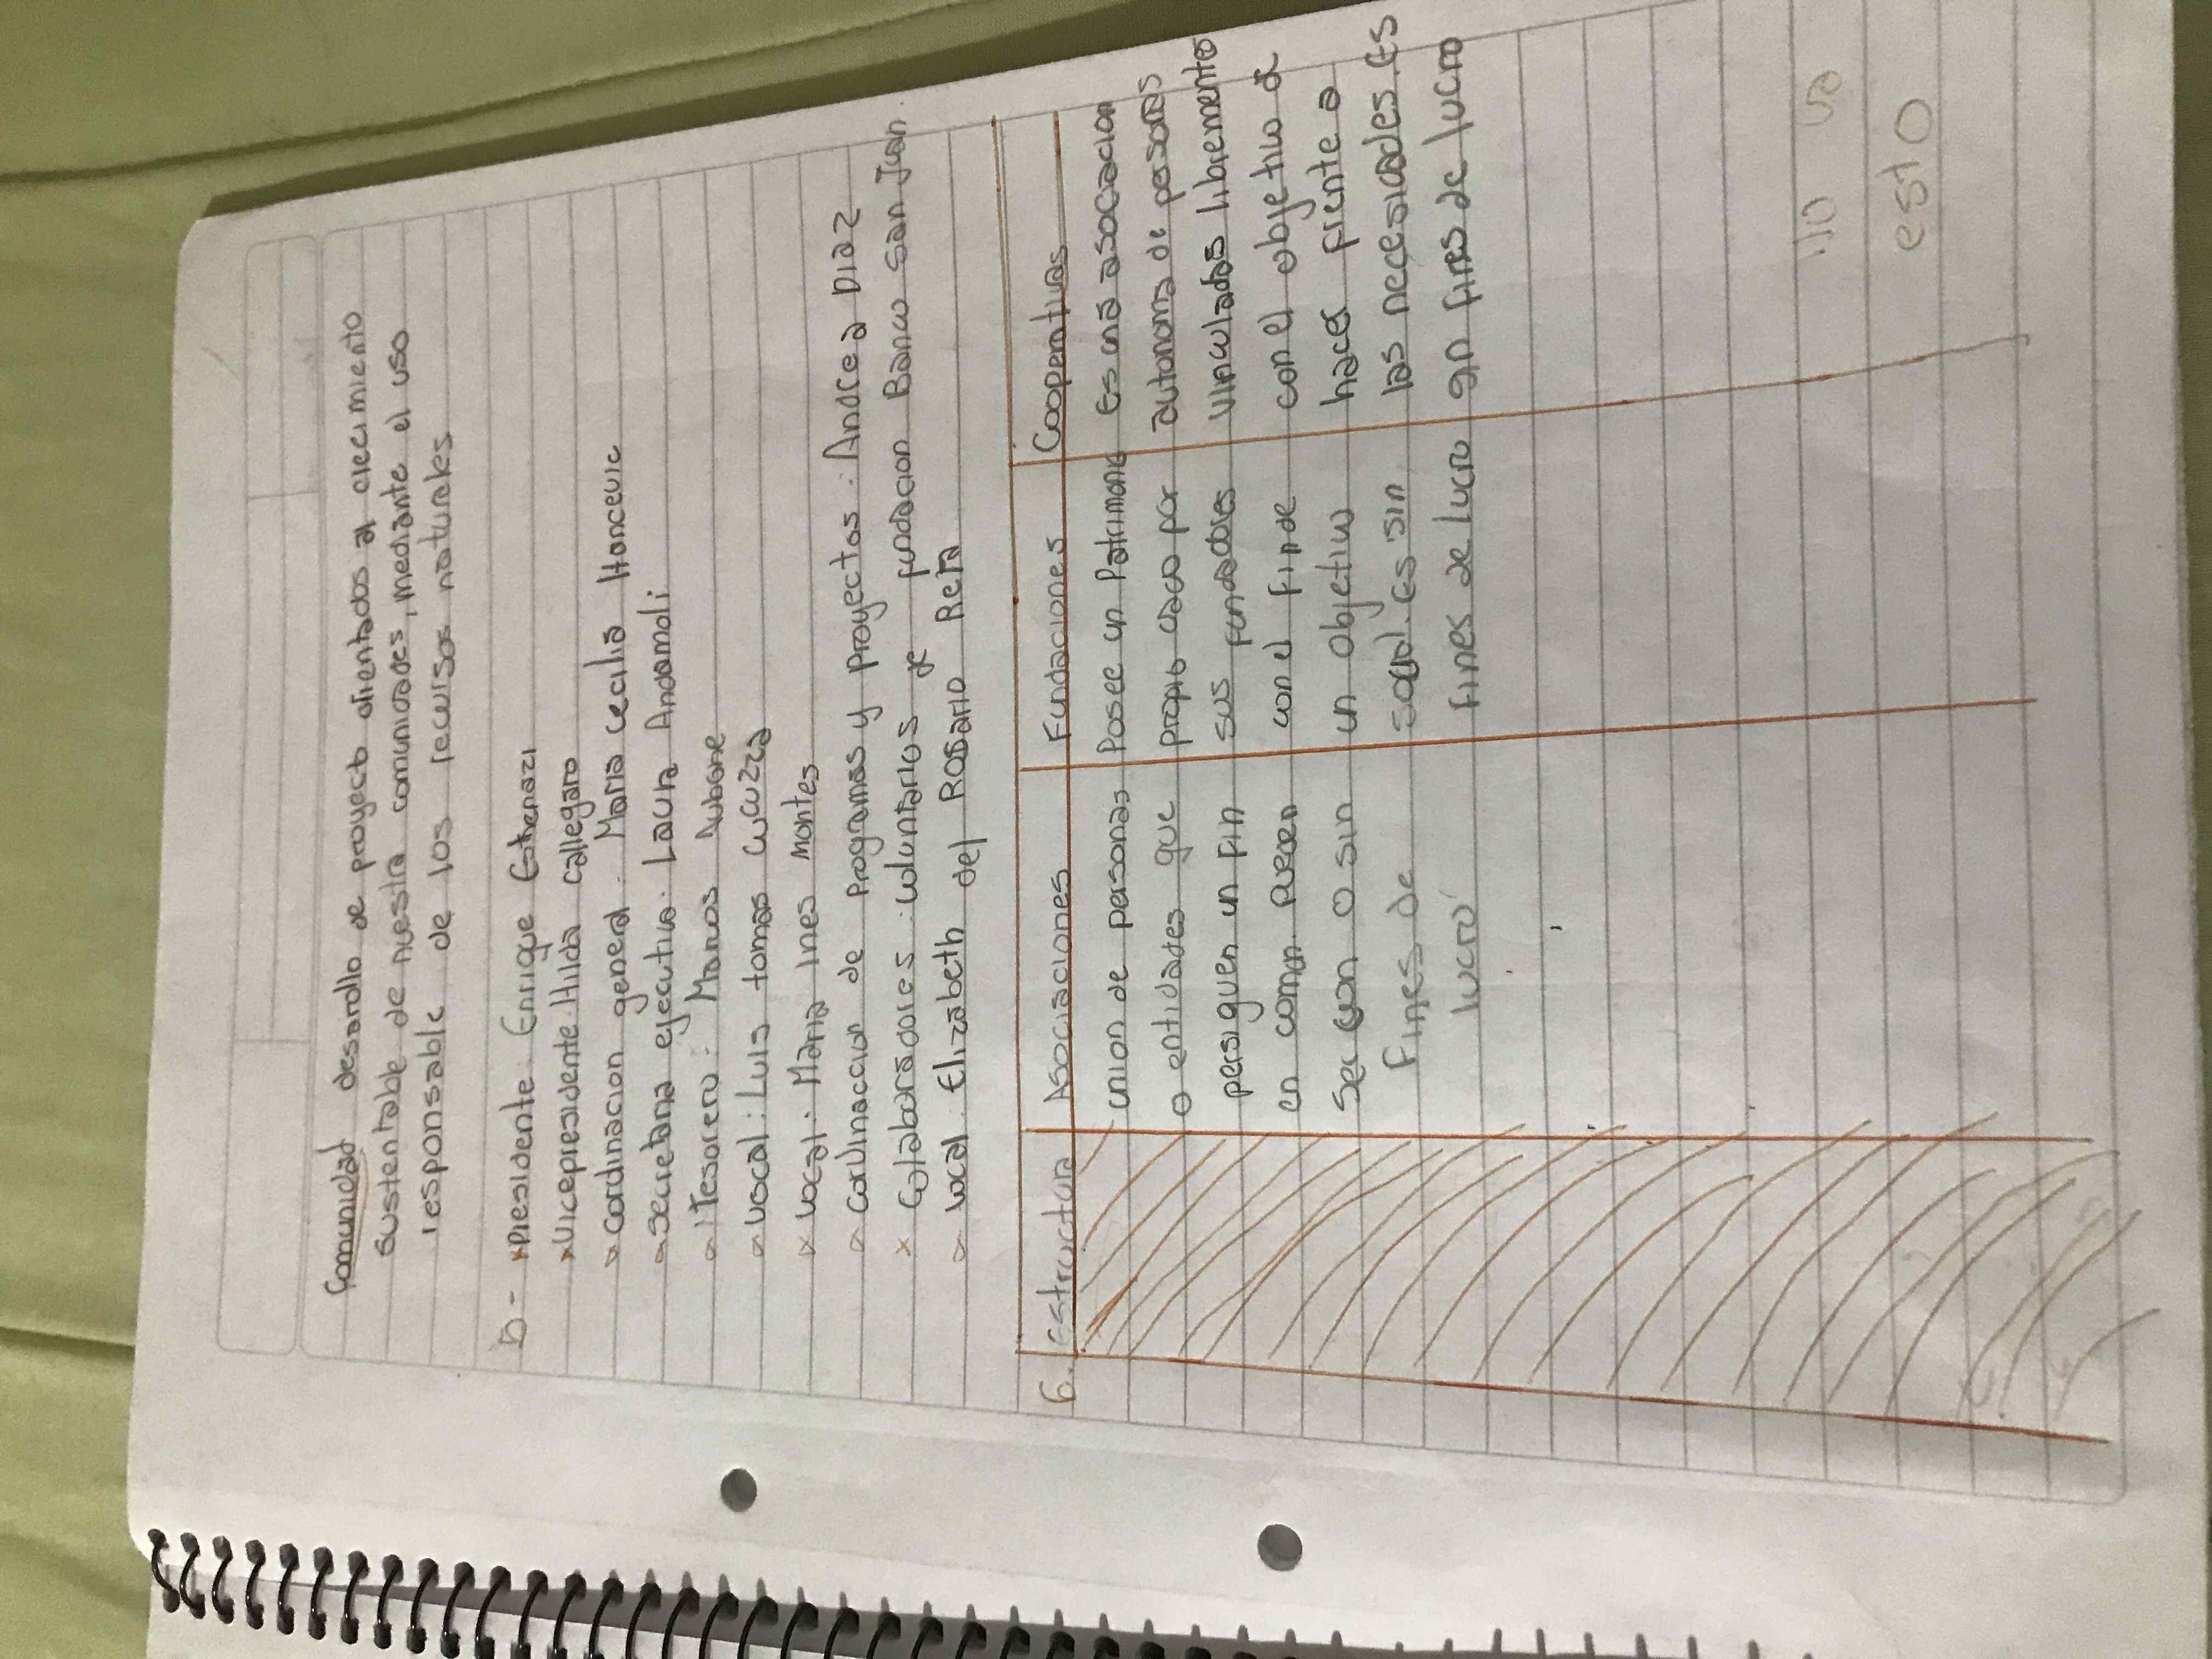 Comunidad desarrollo de proyecto orientados al crecimiento
sustentable de nuestra comunidades, mediante el uso
responsable de los recursos naturales
5-
Presidente: Enrique Eskenazi
Vicepresidente: Hilda Callegaro
Cordinacion general: Maria Cecilia Hancevic
Secretaria ejecutiva: Laura Andamoli
Tesorero: Marcos
vocal: Luis tomas Cucuzza
vocal: Maria Ines Montes
Cordinaccion de Programas y proyectos: Andrea Diaz
Colaboradores: voluntarios de fundacion Banco San Juan.
vocal: Elizabeth del Rosario Reta
6. estructura Asociaciones Fundaciones Cooperativas
union de personas
o entidades que
persiguen un fin
en comun. pueden
ser con o sin
fines de
lucro
Posee un Patrimonio
propio dado por
sus fundadores
con el fin de
un objetivo
social. Es sin
fines de lucro
Es una asociacion
autonoma de personas
vinculadas libremente
con el objetivo de
hacer frente a
las necesidades. Es
sin fines de lucro
no va
esto